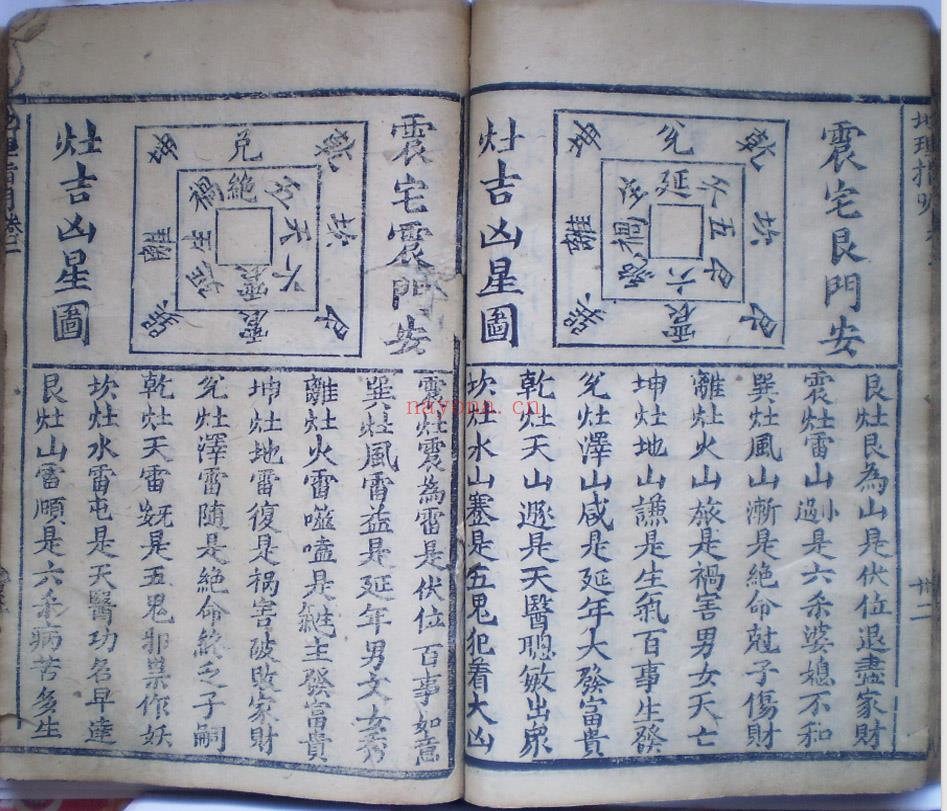 地理指明
廿二
震宅艮門安
灶吉凶星圖
乾
兌
坤
坎
離
艮
震
巽
延
五
六
禍
艮灶艮為山是伏位退盡家財
震灶雷山小過是六杀婆媳不和
巽灶風山漸是絶命尅子傷財
離灶火山旅是禍害男女夭亡
坤灶地山謙是生氣百事生發
兌灶澤山咸是延年大發富貴
乾灶天山遯是天醫聰敏出衆
坎灶水山蹇是五鬼犯着大凶
震宅震門安
灶吉凶星圖
乾
兌
坤
坎
離
艮
震
巽
絶
禍
天
六
震
延
震灶震為雷是伏位百事如意
巽灶風雷益是延年男文女秀
離灶火雷噬嗑是生主發富貴
坤灶地雷復是禍害破敗家財
兌灶澤雷隨是絶命絶乏子嗣
乾灶天雷旡是五鬼邪祟作妖
坎灶水雷屯是天醫功名早達
艮灶山雷頤是六杀病苦多生
地理指明卷二
nayona.cn